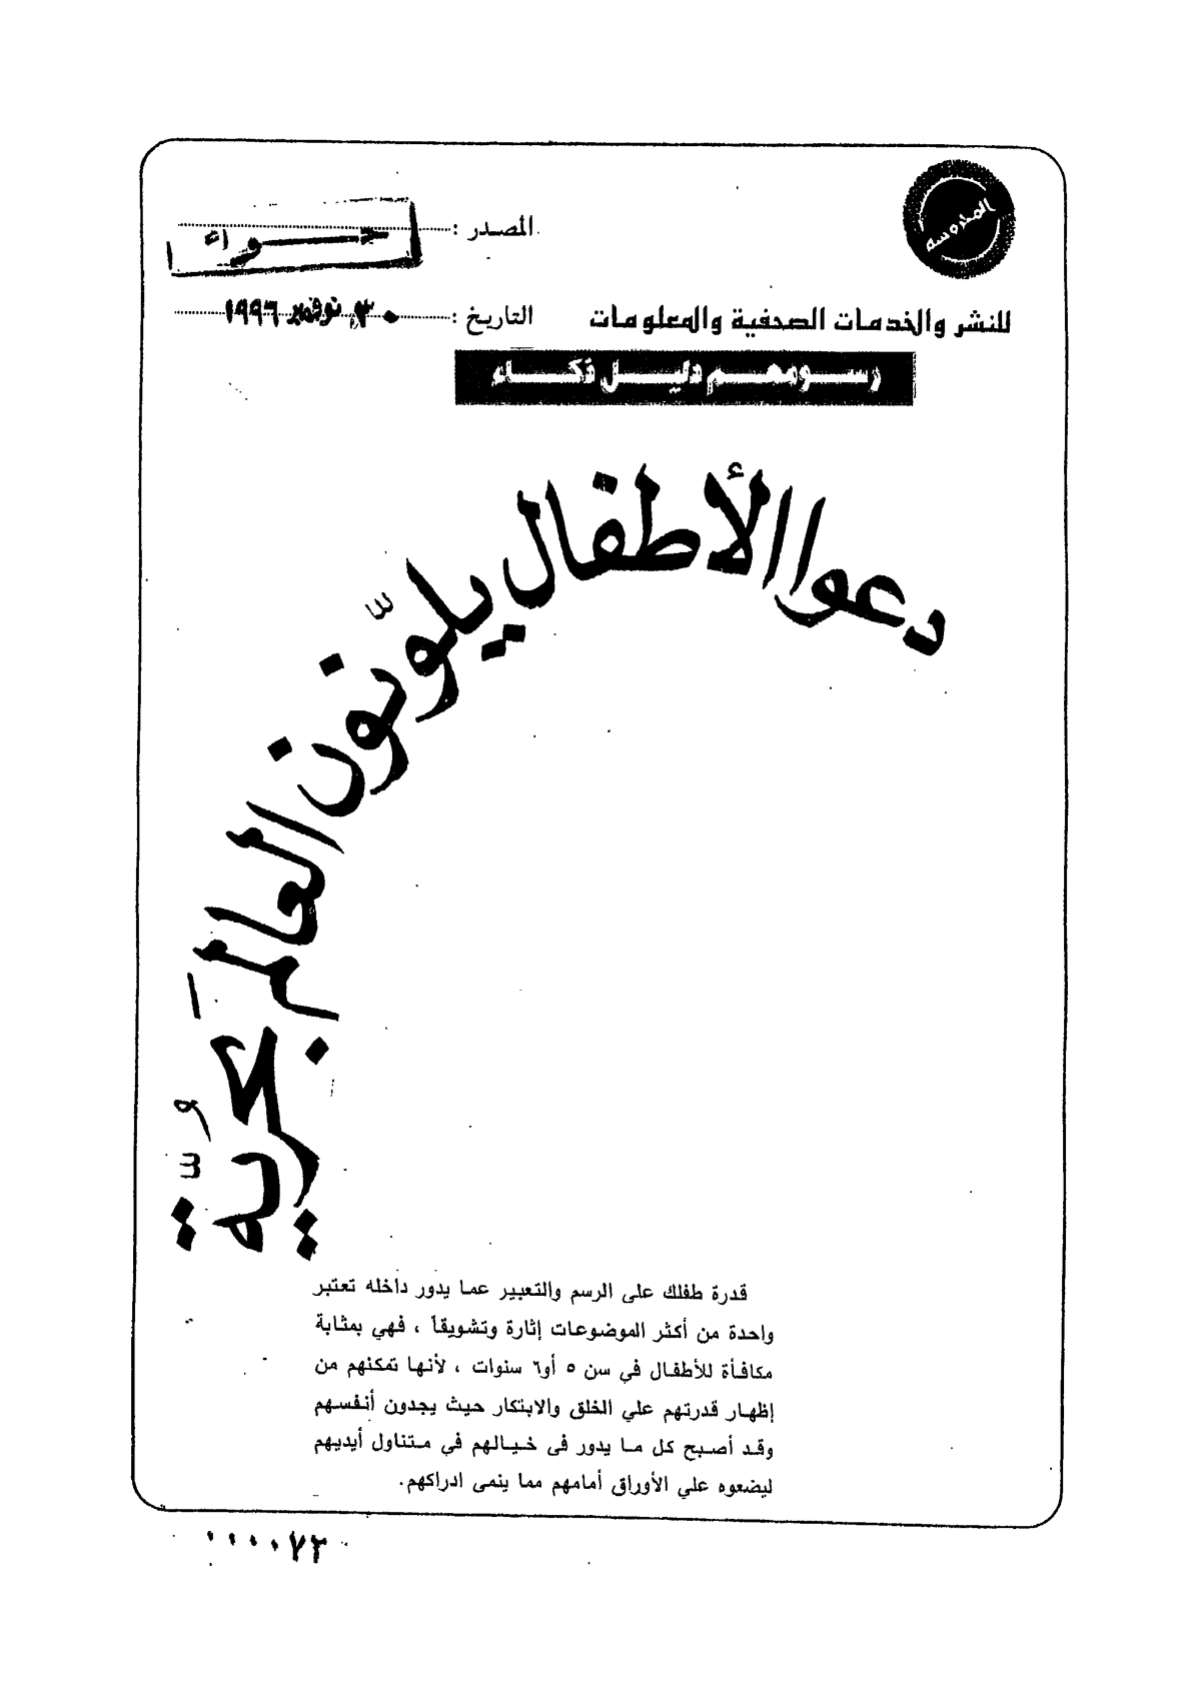 المصدر :
حواء
للنشر والخدمات الصحفية والمعلومات
التاريخ : ٣٠ نوفمبر ١٩٩٦
رسومهم دليل ذكاء
دعوا الأطفال يلوّنون العالم بحُريّة
قدرة طفلك على الرسم والتعبير عما يدور داخله تعتبر
واحدة من أكثر الموضوعات إثارة وتشويقاً ، فهي بمثابة
مكافأة للأطفال في سن ٥ أو٦ سنوات ، لأنها تمكنهم من
إظهار قدرتهم علي الخلق والابتكار حيث يجدون أنفسهم
وقد أصبح كل ما يدور فى خيالهم في متناول أيديهم
ليضعوه علي الأوراق أمامهم مما ينمى ادراكهم.
٠٠٠٠٧٣